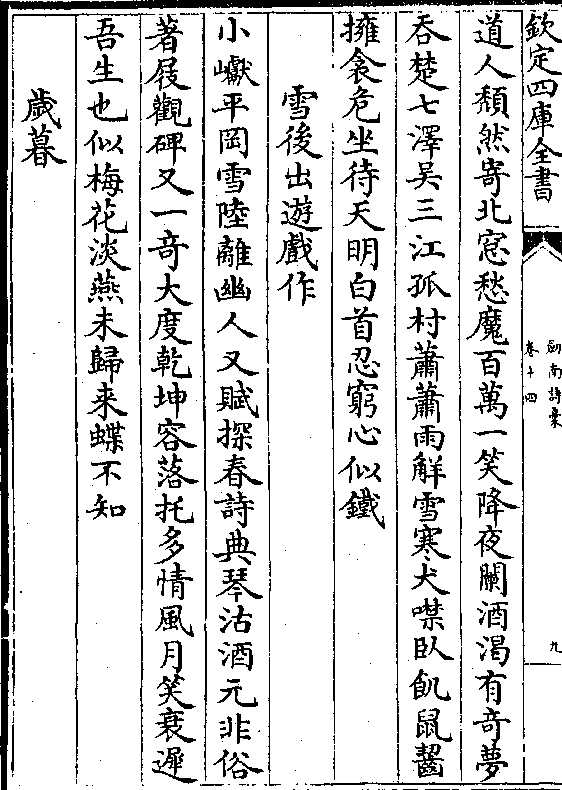 欽定四庫全書
劒南詩稾
卷十四
九
道人頹然寄北窓愁魔百萬一笑降夜闌酒渴有奇夢
吞楚七澤吳三江孤村蕭蕭雨解雪寒犬噤臥飢鼠齧
擁衾危坐待天明白首忍窮心似鐵
雪後出遊戲作
小巘平岡雪陸離幽人又賦探春詩典琴沽酒元非俗
著屐觀碑又一奇大度乾坤容落托多情風月笑衰遲
吾生也似梅花淡燕未歸来蝶不知
歲暮